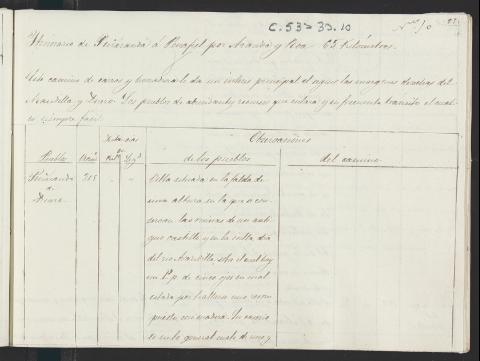 C.53=39.10
Nº 10
Itinerario de Peñaranda á Peñafiel por Aranda y Roa 65 Kilómetros.
Este camino de carros y herradura le da un interes principal el seguir las margenes derechas del
Arandilla y Duero. Los pueblos de abundantes recursos que enlaza y su frecuente transito el cual
es siempre facil.
Observaciones
Pueblos
de los pueblos
del camino
Peñaranda
de
Duero
255
Villa situada en la falda de
una altura en la que se con-
servan las ruinas de un anti-
guo castillo y en la orilla dra
del rio Arandilla, sobre el cual hay
un P. p. de cinco ojos en mal
estado por hallarse uno recom-
puesto con madera. Su caserio
es en lo general malo de uno y